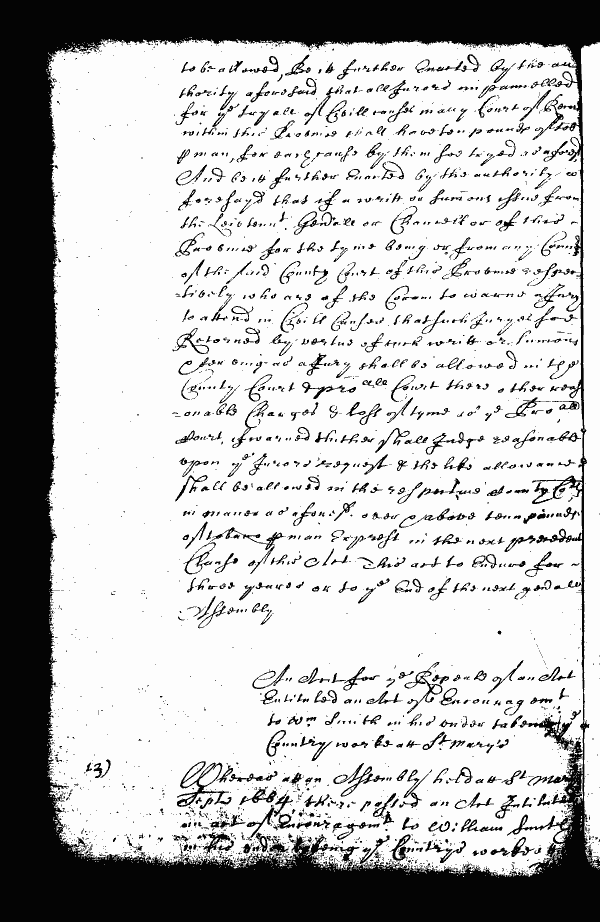 to be allowed, Be it further Enacted by the au
thority aforesaid that all Jurors impannelled
for ye tryall of Civill causes in any Court of Recor
within this Province shall have ten pounds of tob
p man, for each cause by them soe tryed as afores
And be it further Enacted by the authority a
foresayd that if a writt or sumons issue from
the Leivtennt. Genall or Chancellor of this
Province for the tyme being or from any County
of the said County Court of this Province respec
tively who are of the Coram to warne a Jury
to attend in Civill Causes that such Juryes soe
Retorned by vertue of such writt or sumons
serving as a Jury shall be allowed in the
County Court & pro all Court there other reas
onable Charges & loss of tyme as ye Pro all
Court, if warned thither shall Judge reasonable
upon ye Jurors request & the like allowance
shall be allowed in the respective County Cort
in maner as aforesd. over & above tenn pounds
of tobacco p man Exprest in the next precedent
Clause of this Act This act to Endure for
three yeares or to ye End of the next genall
Assembly
An Act for ye Repeale of an Act
Entituled an Act of Encouragemt
to Wm Smith in his under takeing ye
Country worke att St Mary's
13)
Whereas att an Assembly held att St Mary
Septr 1664 there passed an Act Intituled
an act of Encouragemt. to William Smith
in his under takeing ye Countrys worke